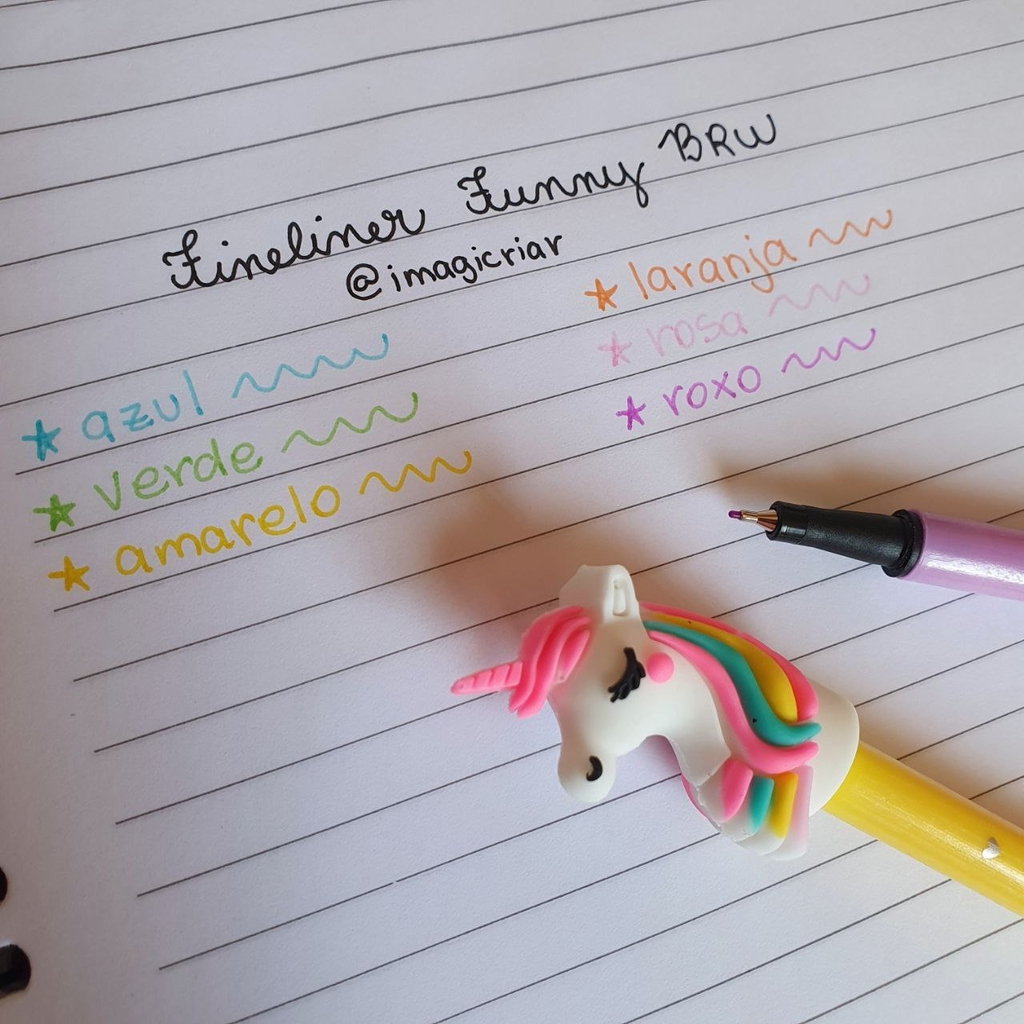 Fineliner Funny BRW
@imagicriar
azul
verde
amarelo
laranja
rosa
roxo